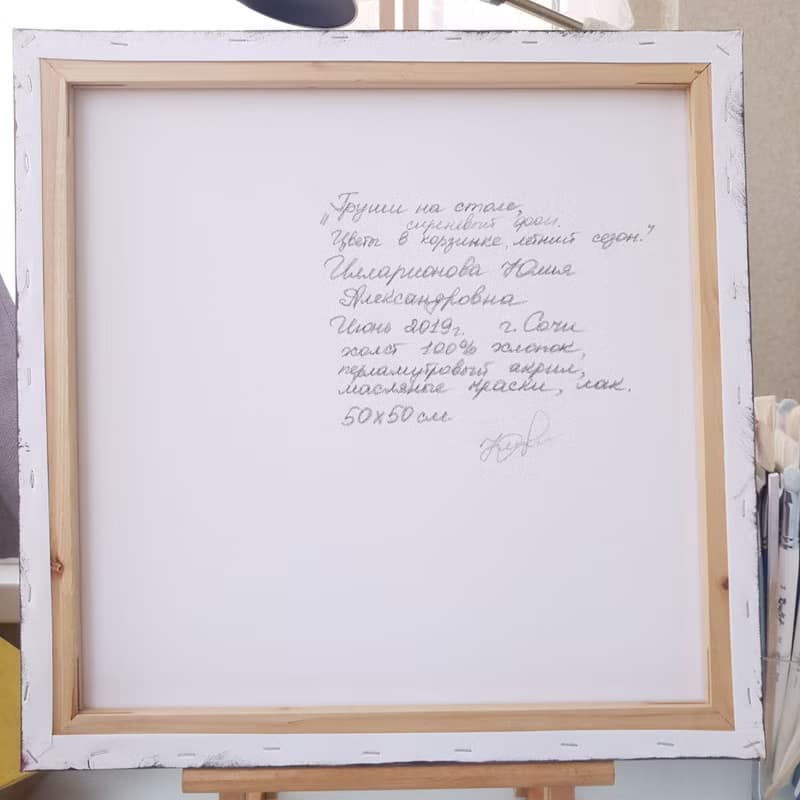 "Груши на столе,
сиреневый фон.
Цветы в корзинке, летний сезон."
Илларионова Юлия
Александровна
Июнь 2019г. г. Сочи
холст 100% хлопок,
перламутровый акрил,
масляные краски, лак.
50х50 см